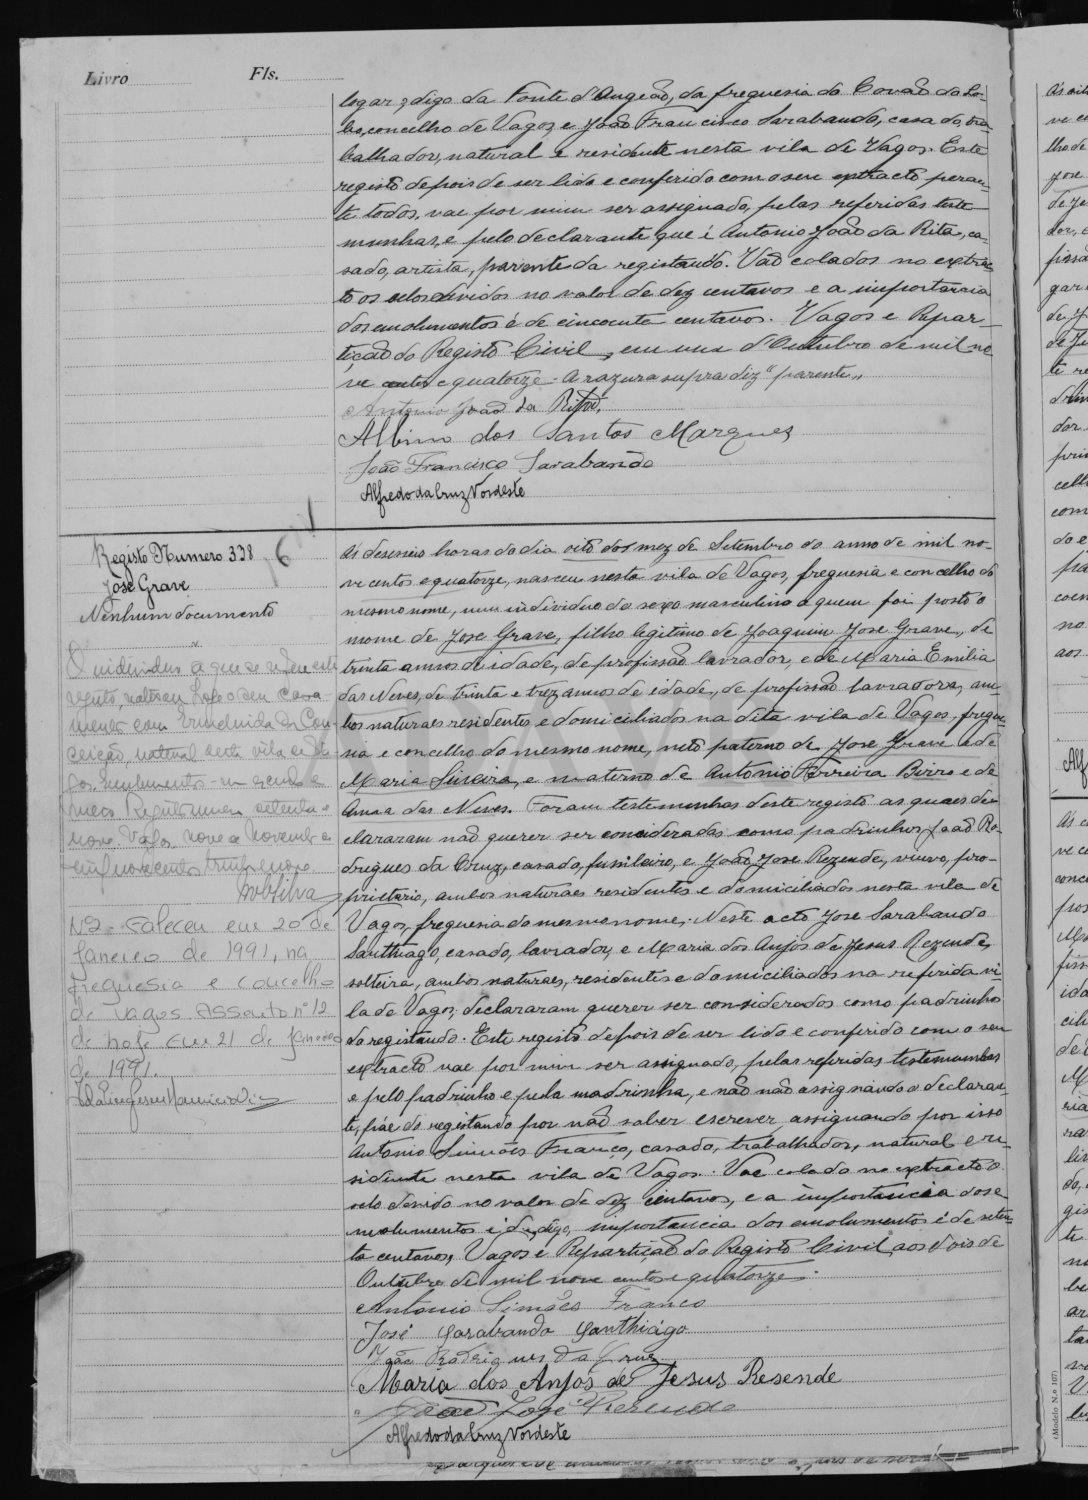 Livro Fls.
logar, digo da Fonte d'Angeão, da freguesia do Covão do Lo-
bo, concelho de Vagos, e João Francisco Sarabando, casado, tra-
balhador, natural e residente nesta vila de Vagos. Este
registo depois de ser lido e conferido com o seu extracto peran-
te todos, vae por mim ser assignado, pelas referidas teste-
munhas, e pelo declarante que é Antonio João da Rita, ca-
sado, artista, parente da registando. Vão colados no extrac-
to os selos devidos no valor de dez centavos e a importancia
dos emolumentos é de cincoenta centavos. Vagos e Repar-
tição do Registo Civil, em um d'Outubro de mil no-
ve centos e quatorze. A razura supra diz "parente"
Antonio João da Rita
Albino dos Santos Marques
João Francisco Sarabando
Alfredo da Cruz Nordeste
Registo Numero 338
José Grave
Nenhum documento
6
Ás deseseis horas do dia oito do mez de Setembro do anno de mil no-
ve centos e quatorze, nasceu nesta vila de Vagos, freguesia e concelho do
mesmo nome, um individuo do sexo masculino a quem foi posto o
nome de José Grave, filho legitimo de Joaquim José Grave, de
trinta annos de idade, de profissão lavrador, e de Maria Emilia
das Neves, de trinta e trez annos de idade, de profissão lavradora, am-
bos naturaes residentes e domiciliados na dita vila de Vagos, fregue-
sia e concelho do mesmo nome, neto paterno de José Grave e de
Maria Silveira, e materno de Antonio Ferreira Birro e de
Anna das Neves. Foram testemunhas deste registo as quaes de-
clararam não querer ser consideradas como padrinhos João Ro-
drigues da Cruz, casado, funileiro, e João José Rezende, viuvo, pro-
prietario, ambos naturaes residentes e domiciliados nesta vila de
Vagos, freguesia do mesmo nome. Neste acto José Sarabando
Santhiago, casado, lavrador, e Maria dos Anjos de Jesus Rezende,
solteira, ambos naturaes, residentes e domiciliados na referida vi-
la de Vagos, declararam querer ser considerados como padrinhos
do registando. Este registo depois de ser lido e conferido com o seu
extracto vae por mim ser assignado, pelas referidas testemunhas
e pelo padrinho e pela madrinha, e não não assignando o declaran-
te, páe do registando por não saber escrever, assignando por isso
Antonio Simões Franco, casado, trabalhador, natural e re-
sidente nesta vila de Vagos. Vae colado no extracto o
selo devido no valor de dez centavos, e a importancia dos e-
molumentos é de, digo, importancia dos emolumentos é de seten-
ta centavos. Vagos e Repartição do Registo Civil, aos dois de
Outubro de mil nove centos e quatorze.
Antonio Simões Franco
José Sarabando Santhiágo
João Rodrigues da Cruz
Maria dos Anjos de Jesus Resende
João José Rezende
Alfredo da Cruz Nordeste
O individuo a que se refere este
assento, contraiu hoje o seu casa-
mento com Ermelinda da Con-
ceição, natural desta vila de Va-
gos.
nove. Vagos, nove de Novembro de
mil novecentos trinta e nove
Nº 2 - Faleceu em 20 de
Janeiro de 1991, na
freguesia e concelho
de Vagos Assento nº 12
de hoje Em 21 de Janeiro
de 1991.
(Modelo N.º 107)